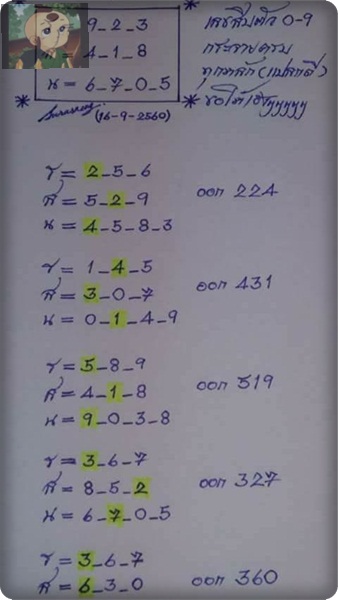 9_2_3
4_1_8
น = 6_7_0_5
เลขสิบตัว 0-9
กระจายครบ
ทุกหลัก(แปลกดี)
ขอให้เฮงๆๆๆๆๆ
(16-9-2560)
ร = 2_5_6
ส = 5_2_9
น = 4_5_8_3
ออก 224
ร = 1_4_5
ส = 3_0_7
น = 0_1_4_9
ออก 431
ร = 5_8_9
ส = 4_1_8
น = 9_0_3_8
ออก 519
ร = 3_6_7
ส = 8_5_2
น = 6_7_0_5
ออก 327
ร = 3_6_7
ส = 6_3_0
ออก 360